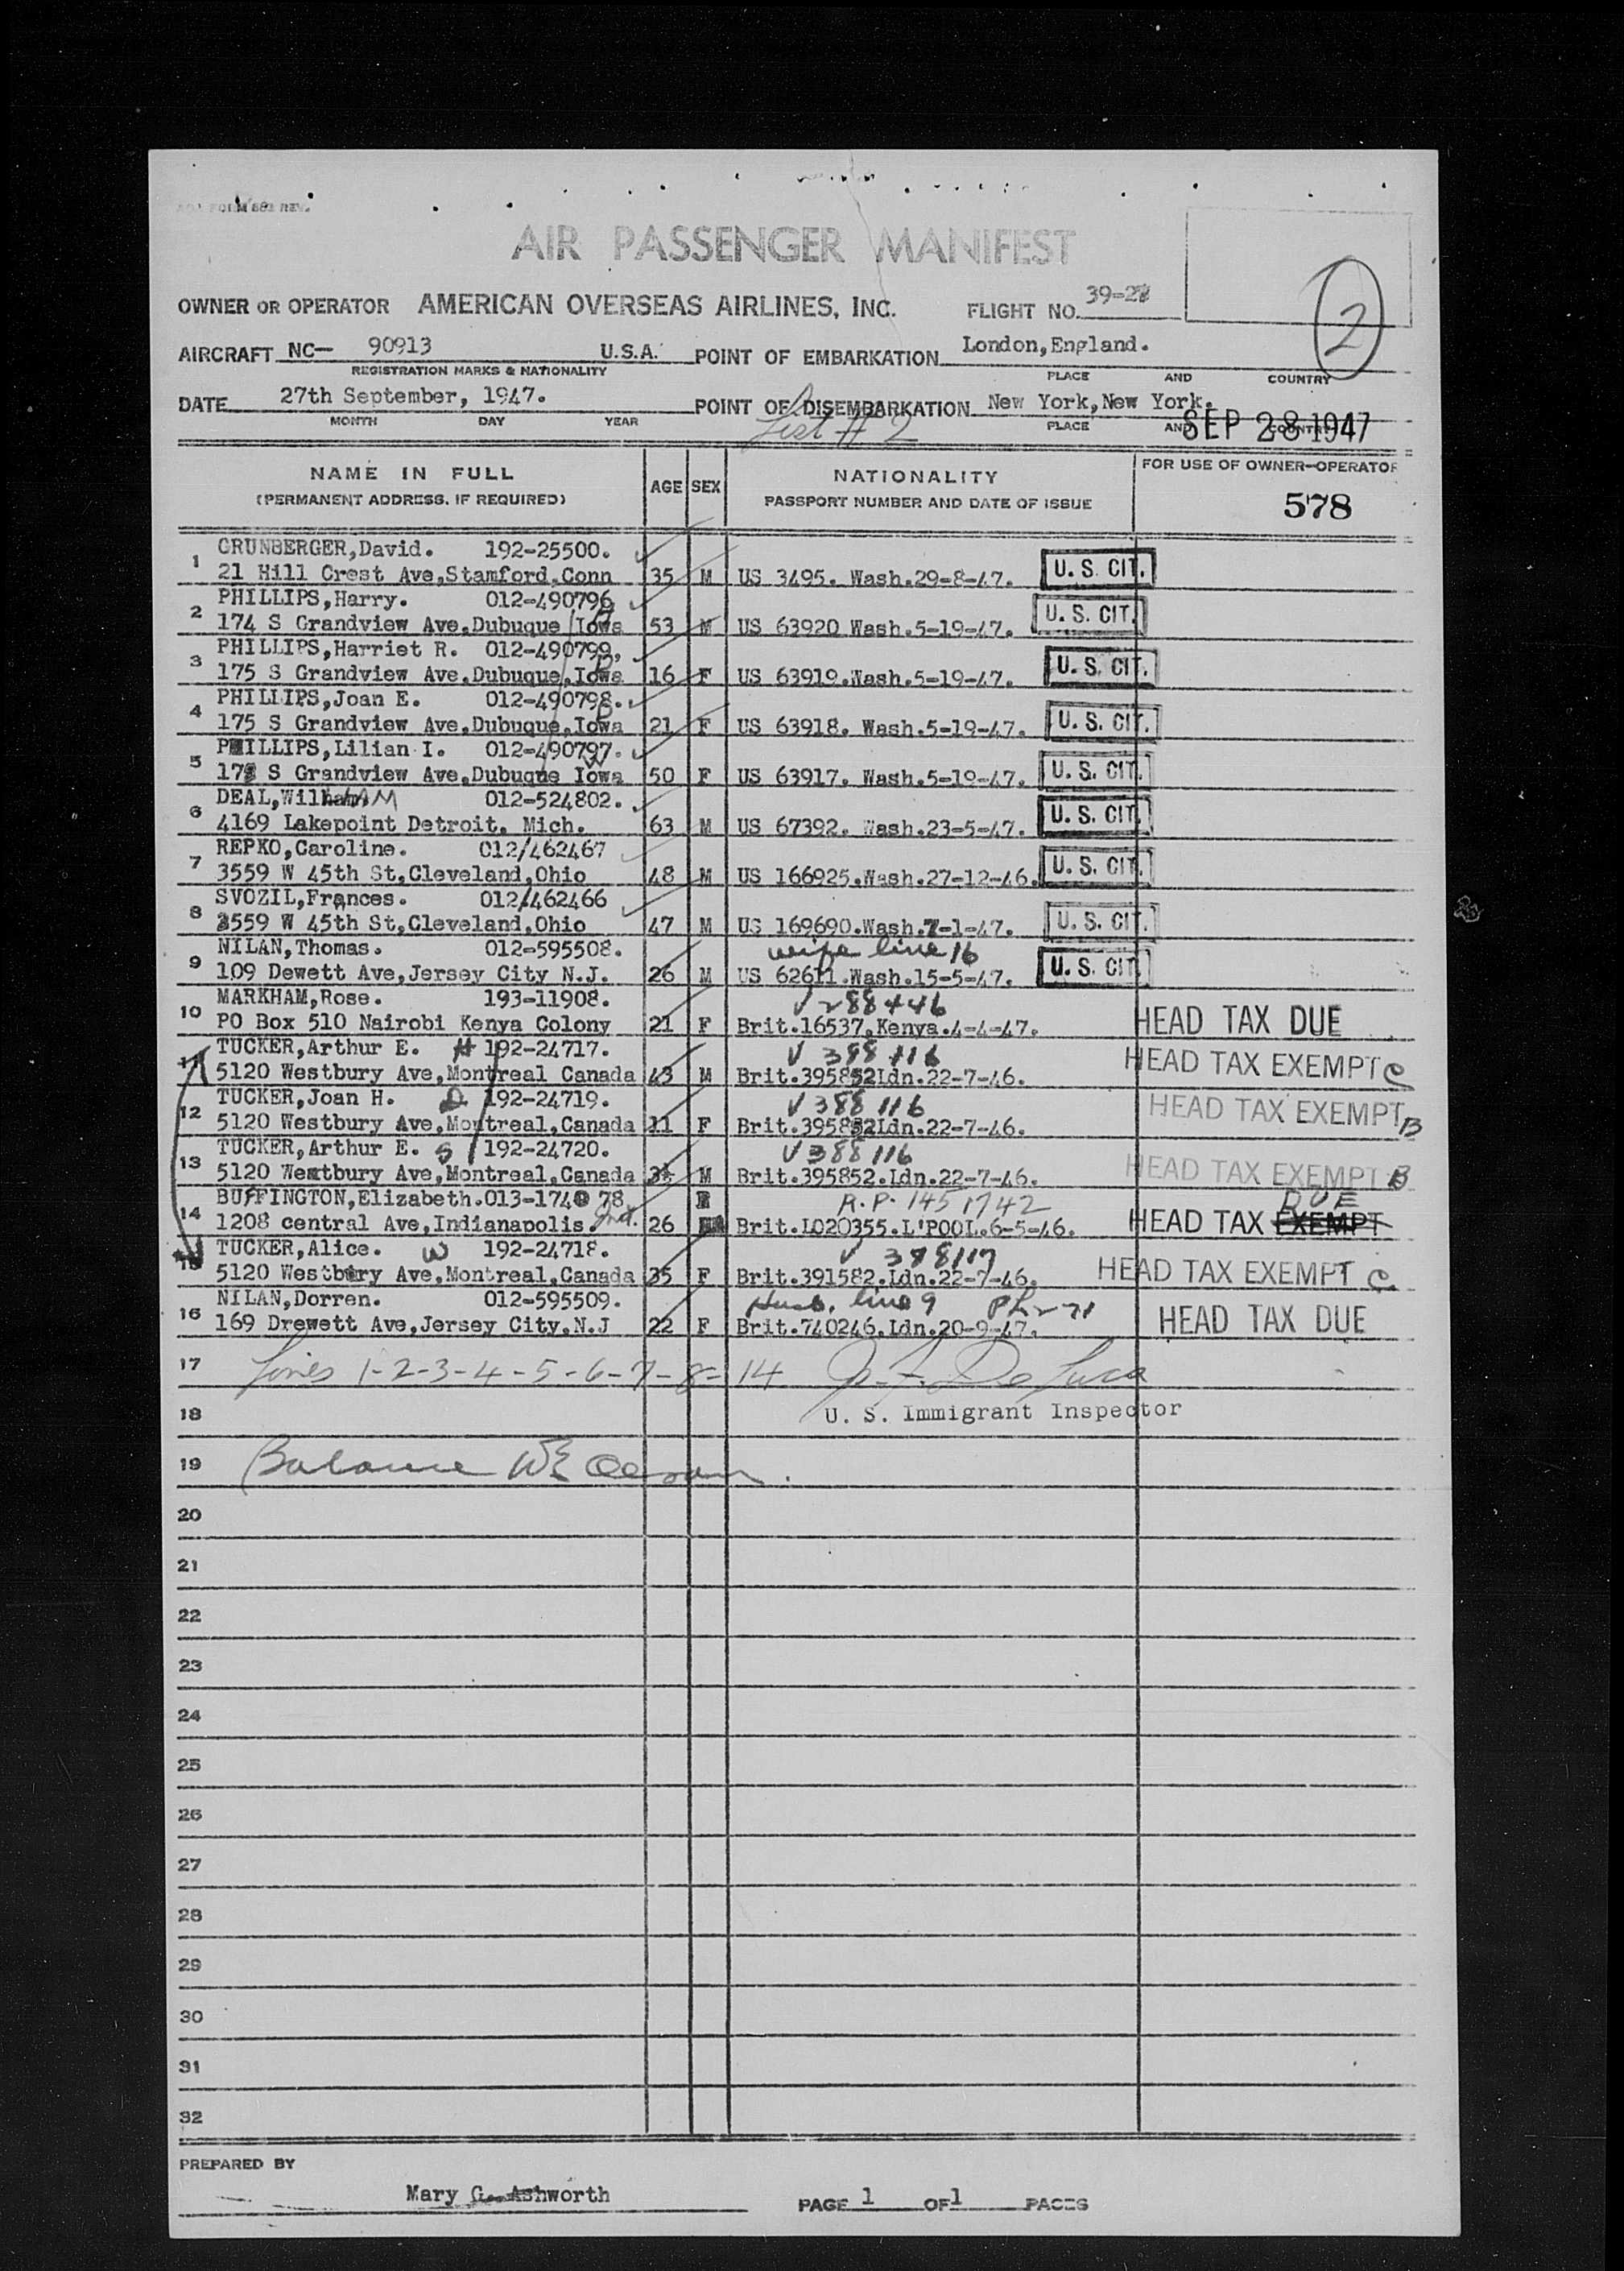 FORM 682 REV.
AIR PASSENGER MANIFEST
OWNER OR OPERATOR AMERICAN OVERSEAS AIRLINES, INC. FLIGHT NO. 39-27
2
AIRCRAFT NC— 90913 U.S.A. POINT OF EMBARKATION London,England.
REGISTRATION MARKS & NATIONALITY PLACE AND COUNTRY
DATE 27th September, 1947. POINT OF DISEMBARKATION New York,New York.
MONTH DAY YEAR List # 2 PLACE AND COUNTRY SEP 28 1947
NAME IN FULL
(PERMANENT ADDRESS, IF REQUIRED)
AGE SEX
NATIONALITY
PASSPORT NUMBER AND DATE OF ISSUE
FOR USE OF OWNER-OPERATOR
578
GRUNBERGER,David. 192-25500.
1 21 Hill Crest Ave,Stamford,Conn 35 M US 3495. Wash.29-8-47. U.S. CIT.
PHILLIPS,Harry. 012-490796
2 174 S Grandview Ave,Dubuque Iowa 53 M US 63920 Wash.5-19-47. U.S. CIT.
PHILLIPS,Harriet R. 012-490799.
3 175 S Grandview Ave,Dubuque,Iowa 16 F US 63919.Wash.5-19-47. U.S. CIT.
PHILLIPS,Joan E. 012-490798.
4 175 S Grandview Ave,Dubuque,Iowa 21 F US 63918. Wash.5-19-47. U.S. CIT.
PHILLIPS,Lilian I. 012-490797.
5 175 S Grandview Ave,Dubuque Iowa 50 F US 63917. Wash.5-19-47. U.S. CIT.
DEAL,William 012-524802.
6 4169 Lakepoint Detroit. Mich. 63 M US 67392. Wash.23-5-47. U.S. CIT.
REPKO,Caroline. 012/462467
7 3559 W 45th St,Cleveland,Ohio 48 M US 166925.Wash.27-12-46. U.S. CIT.
SVOZIL,Frances. 012/462466
8 3559 W 45th St,Cleveland,Ohio 47 M US 169690.Wash.7-1-47. U.S. CIT.
NILAN,Thomas. 012-595508. wife line 16
9 109 Dewett Ave,Jersey City N.J. 26 M US 62611.Wash.15-5-47. U.S. CIT.
MARKHAM,Rose. 193-11908. V 288446
10 PO Box 510 Nairobi Kenya Colony 21 F Brit.16537.Kenya.4-4-47. HEAD TAX DUE
TUCKER,Arthur E. H 192-24717. V 388116
11 5120 Westbury Ave,Montreal Canada 43 M Brit.395852Ldn.22-7-46. HEAD TAX EXEMPT C
TUCKER,Joan H. D 192-24719. V 388116
12 5120 Westbury Ave,Montreal,Canada 11 F Brit.395852Ldn.22-7-46. HEAD TAX EXEMPT B
TUCKER,Arthur E. S 192-24720. V 388116
13 5120 Westbury Ave,Montreal,Canada M Brit.395852.Ldn.22-7-46. HEAD TAX EXEMPT B
BUFFINGTON,Elizabeth.013-174 78 F R.P. 1451742 DUE
14 1208 central Ave,Indianapolis. Ind. 26 Brit.L020355.L'POOL.6-5-46. HEAD TAX EXEMPT
TUCKER,Alice. W 192-24718. V 388117
15 5120 Westbury Ave,Montreal,Canada 35 F Brit.391582.Ldn.22-7-46. HEAD TAX EXEMPT C
NILAN,Dorren. 012-595509. Husb. line 9
16 169 Drewett Ave,Jersey City,N.J 22 F Brit.740246.Ldn.20-9-47. HEAD TAX DUE
17 Lines 1-2-3-4-5-6-7-8-14 De Luca
18 U. S. Immigrant Inspector
19 Balance
20
21
22
23
24
25
26
27
28
29
30
31
32
PREPARED BY
Mary G. Ashworth PAGE 1 OF 1 PAGES